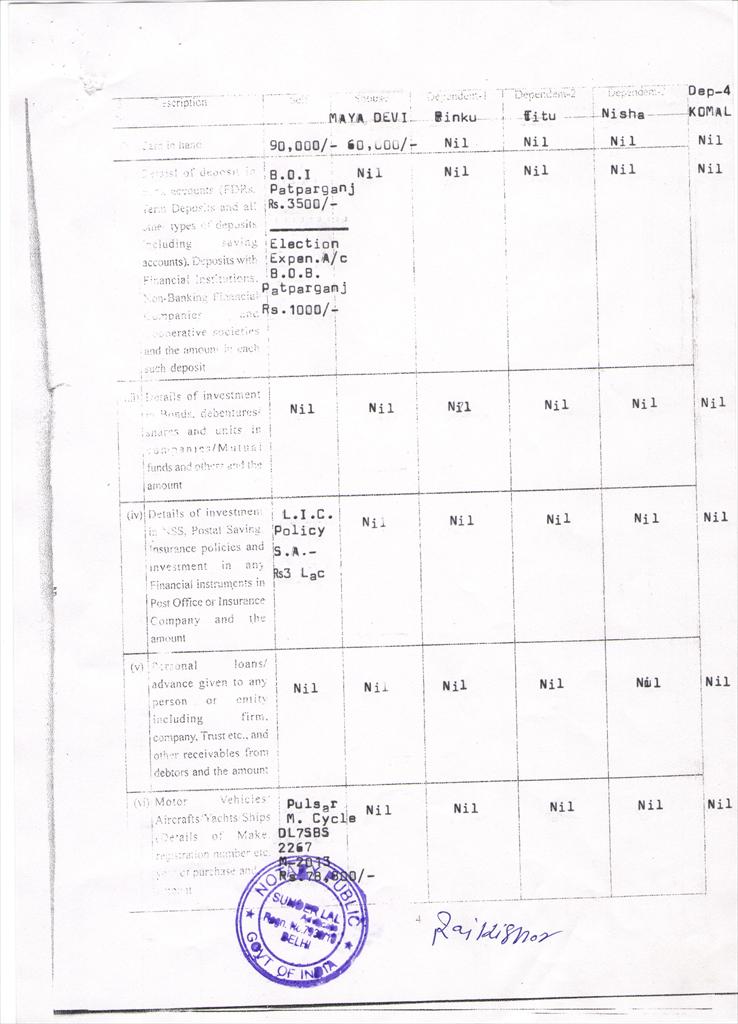 Description Self Spouse Dependent-1 Dependent-2 Dependent-3 Dep-4
MAYA DEVI Rinku Titu Nisha KOMAL
Cash in hand 90,000/- 60,000/- Nil Nil Nil Nil
Details of deposit in B.O.I Nil Nil Nil Nil Nil
accounts (FDRs, Patparganj
Term Deposits and all Rs.3500/-
other types of deposits
including saving Election
accounts). Deposits with Expen.A/c
Financial Institutions, B.O.B.
Non-Banking Financial Patparganj
Companies and Rs.1000/-
cooperative societies
and the amount in each
such deposit
(iii) Details of investment Nil Nil Nil Nil Nil Nil
in Bonds, debentures/
shares and units in
companies/Mutual
funds and others and the
amount
(iv) Details of investment L.I.C. Nil Nil Nil Nil Nil
in NSS, Postal Saving, Policy
Insurance policies and S.A.-
investment in any Rs3 Lac
Financial instruments in
Post Office or Insurance
Company and the
amount
(v) Personal loans/ Nil Nil Nil Nil Nil Nil
advance given to any
person or entity
including firm,
company, Trust etc., and
other receivables from
debtors and the amount
(vi) Motor Vehicles/ Pulsar Nil Nil Nil Nil Nil
Aircrafts/Yachts/Ships M. Cycle
(Details of Make, DL7SBS
registration number etc. 2267
year of purchase and M-2013
amount
NOTARY PUBLIC
SUNDER LAL
Advocate
DELHI
GOVT OF INDIA
4
Raj Kishor